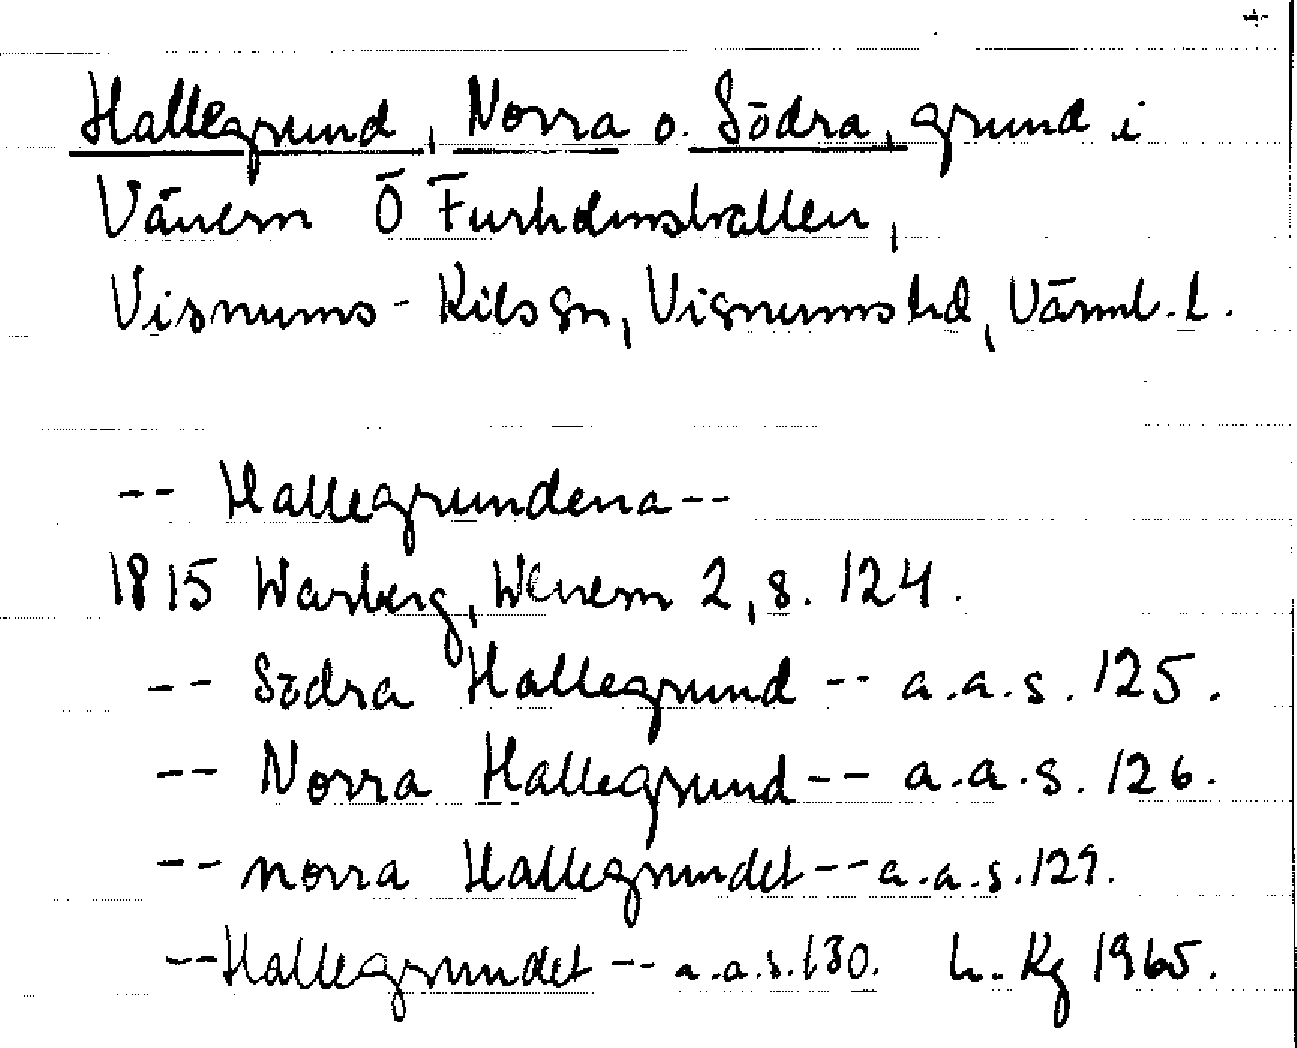 Hallegrund, Norra o. Södra, grund i
Vänern Ö Furholmshallen,
Visnums-Kils sn, Visnums hd, Värml. l.
-- Hallegrundena --
1815 Warberg, Wenern 2, s. 124.
-- Södra Hallegrund -- a.a.s. 125.
-- Norra Hallegrund -- a.a.s. 126.
-- norra Hallegrundet -- a.a.s. 129.
-- Hallegrundet -- a.a.s. 130. L. Kg 1965.